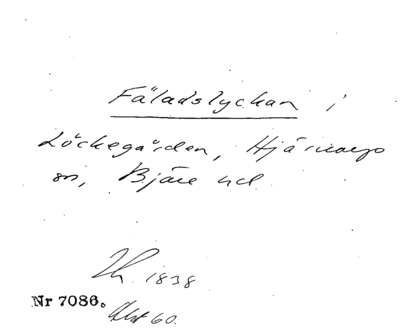 Fäladslyckan i
Löckegården, Hjärnarps
sn, Bjäre hd.
1838
Nr 7086.
60.